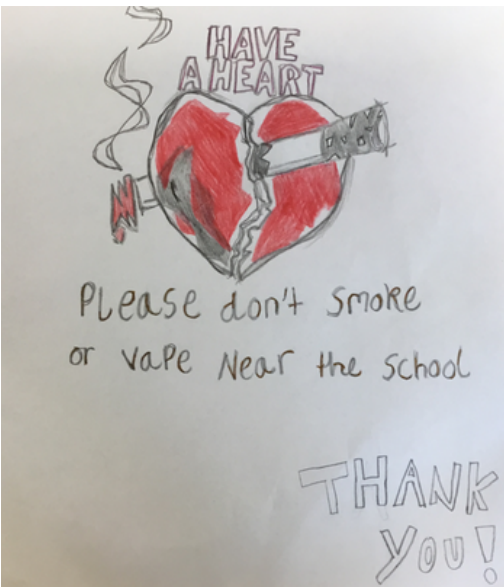 HAVE
A HEART
Please don't smoke
or vape Near the school
THANK
YOU!